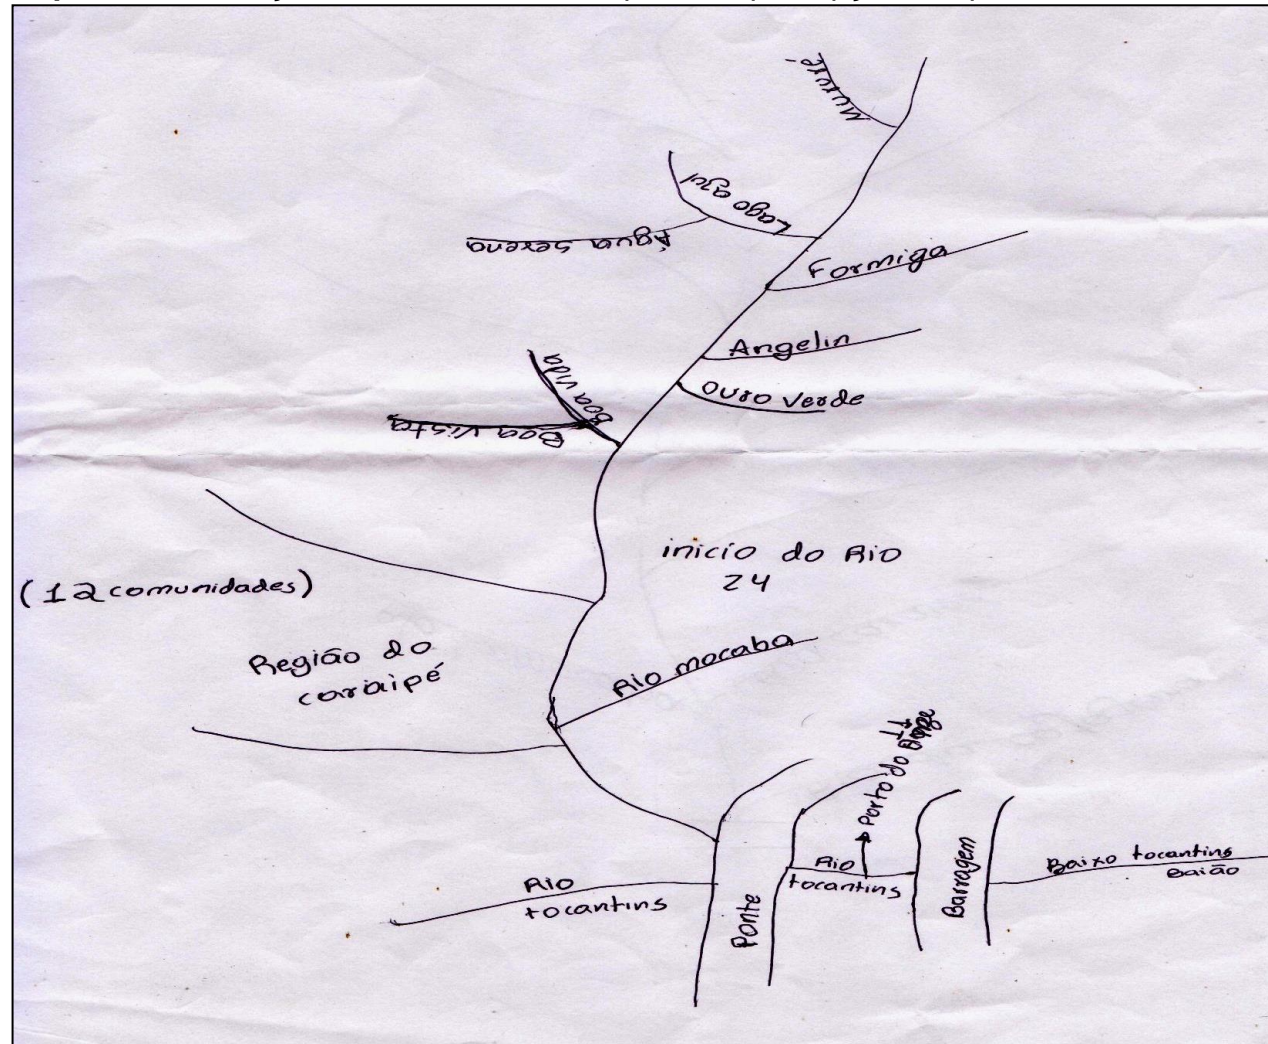 Mururé
Lago azul
Água serena
Formiga
Angelin
Ouro verde
Boa vida
Boa vista
inicio do Rio
(12 comunidades)
Região do
caraipé
Rio mocaba
Porto do
Rio
tocantins
Ponte
Rio
tocantins
Barragem
Baixo tocantins
Baião